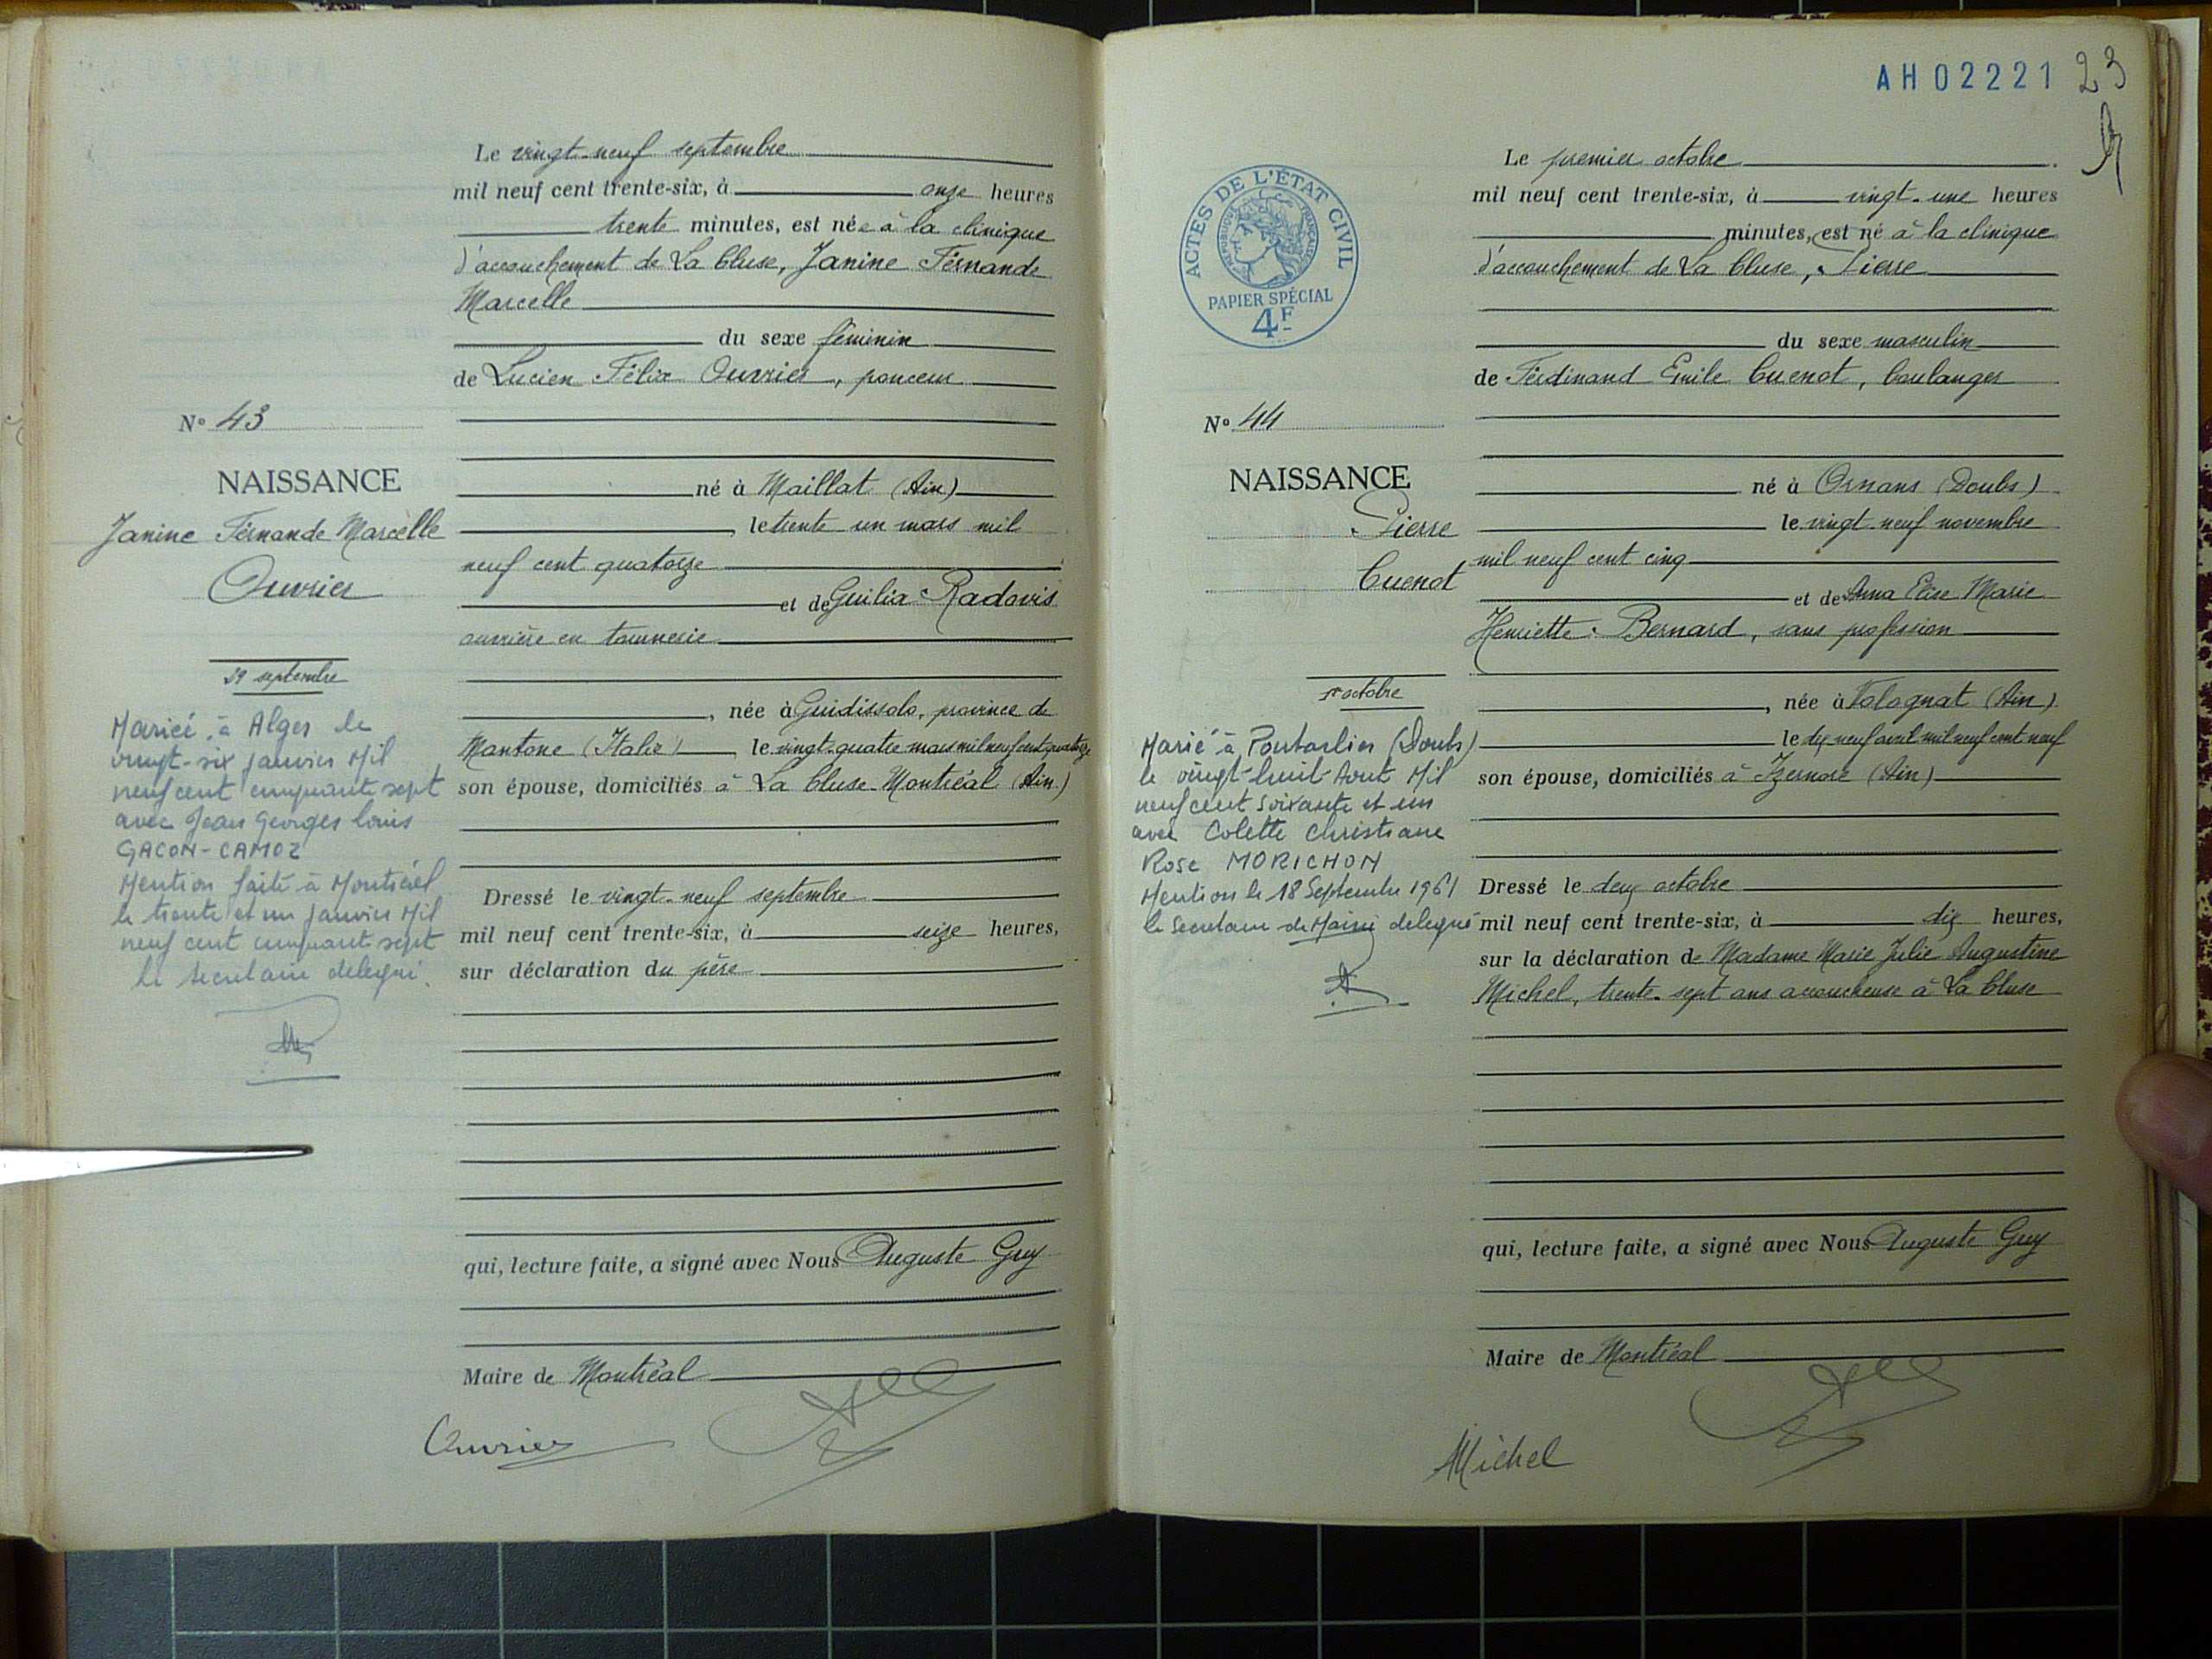 Le vingt-neuf septembre
mil neuf cent trente-six, à onze heures
trente minutes, est née à la clinique
d'accouchement de La Cluse, Janine Fernande
Marcelle
du sexe féminin
de Lucien Félix Ouvrier, ponceur
N° 43
NAISSANCE
Janine Fernande Marcelle
Ouvrier
29 septembre
né à Maillat (Ain)
, le trente un mars mil
neuf cent quatorze
et de Guilia Radovis
ouvrière en tournerie
, née à Guidissolo, province de
Mantone (Italie) le vingt-quatre mars mil neuf cent quatorze
son épouse, domiciliés à La Cluse-Montréal (Ain)
Mariée à Alger le
vingt-six janvier Mil
neuf cent cinquante sept
avec Jean Georges Louis
GACON-CAMOZ
Mention faite à Montréal
le trente et un janvier Mil
neuf cent cinquante sept
Le secrétaire délégué.
Dressé le vingt-neuf septembre
mil neuf cent trente-six, à seize heures,
sur déclaration du père
qui, lecture faite, a signé avec Nous Auguste Guy
Maire de Montréal
Ouvrier
AH02221 23
ACTES DE L'ÉTAT CIVIL
RÉPUBLIQUE FRANÇAISE
PAPIER SPÉCIAL
4F
Le premier octobre
mil neuf cent trente-six, à vingt-une heures
minutes, est né à la clinique
d'accouchement de La Cluse, Pierre
du sexe masculin
de Ferdinand Emile Cuenot, boulanger
N° 44
NAISSANCE
Pierre
Cuenot
1er octobre
né à Ornans (Doubs)
le vingt-neuf novembre
mil neuf cent cinq
et de Anna Elise Marie
Henriette Bernard, sans profession
, née à Volognat (Ain)
le dix-neuf avril mil neuf cent neuf
son épouse, domiciliés à Izernore (Ain)
Marié à Pontarlier (Doubs)
le vingt-huit Août Mil
neuf cent soixante et un
avec Colette Christiane
Rose MORICHON
Mention le 18 Septembre 1961
le Secrétaire de Mairie délégué
Dressé le deux octobre
mil neuf cent trente-six, à dix heures,
sur la déclaration de Madame Marie Julie Augustine
Michel, trente-sept ans accoucheuse à La Cluse
qui, lecture faite, a signé avec Nous Auguste Guy
Maire de Montréal
Michel